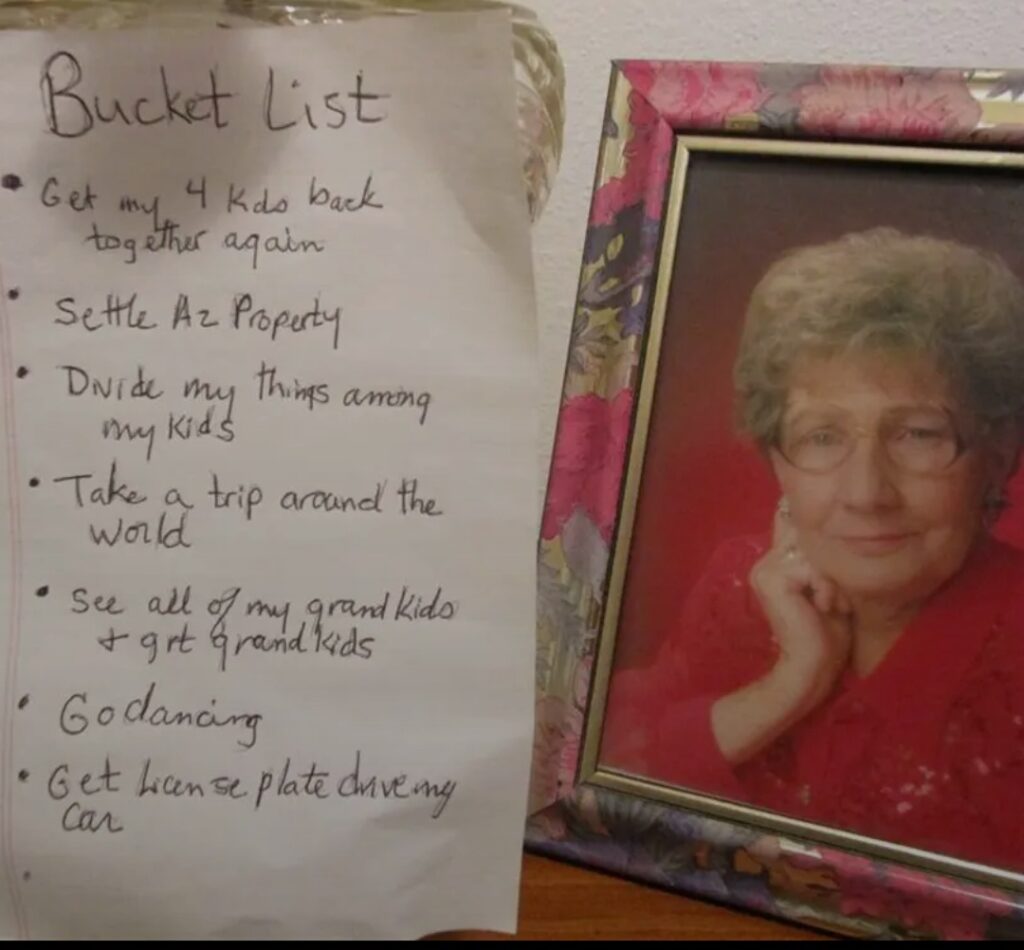 Bucket List
• Get my 4 Kds back
together again
• Settle Az Property
• Divide my things among
my Kids
• Take a trip around the
world
• See all of my grandkids
+ grt grandkids
• Go dancing
• Get License plate drive my
car
•